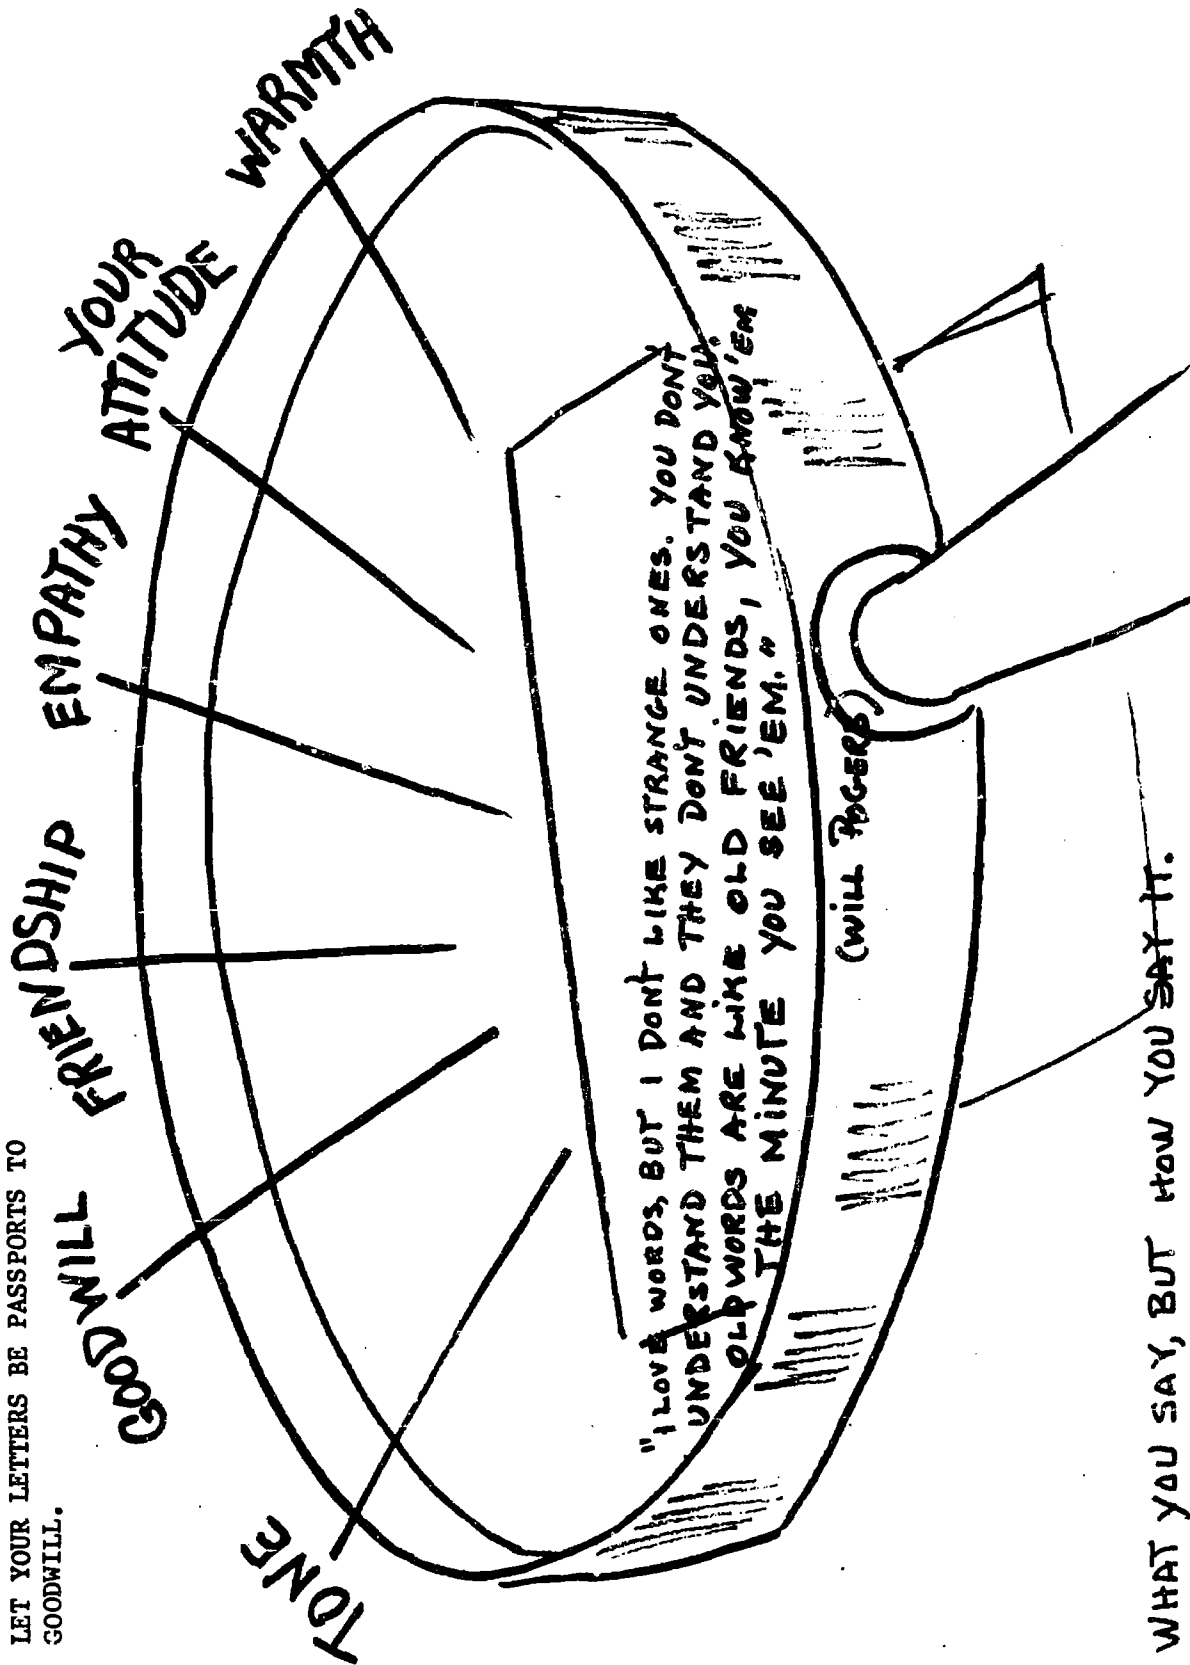 LET YOUR LETTERS BE PASSPORTS TO
GOODWILL.
TONE
GOODWILL
FRIENDSHIP
EMPATHY
YOUR
ATTITUDE
WARMTH
"I LOVE WORDS, BUT I DON'T LIKE STRANGE ONES. YOU DON'T
UNDERSTAND THEM AND THEY DON'T UNDERSTAND YOU.
OLD WORDS ARE LIKE OLD FRIENDS, YOU KNOW 'EM
THE MINUTE YOU SEE 'EM."
(WILL ROGERS)
WHAT YOU SAY, BUT HOW YOU SAY IT.